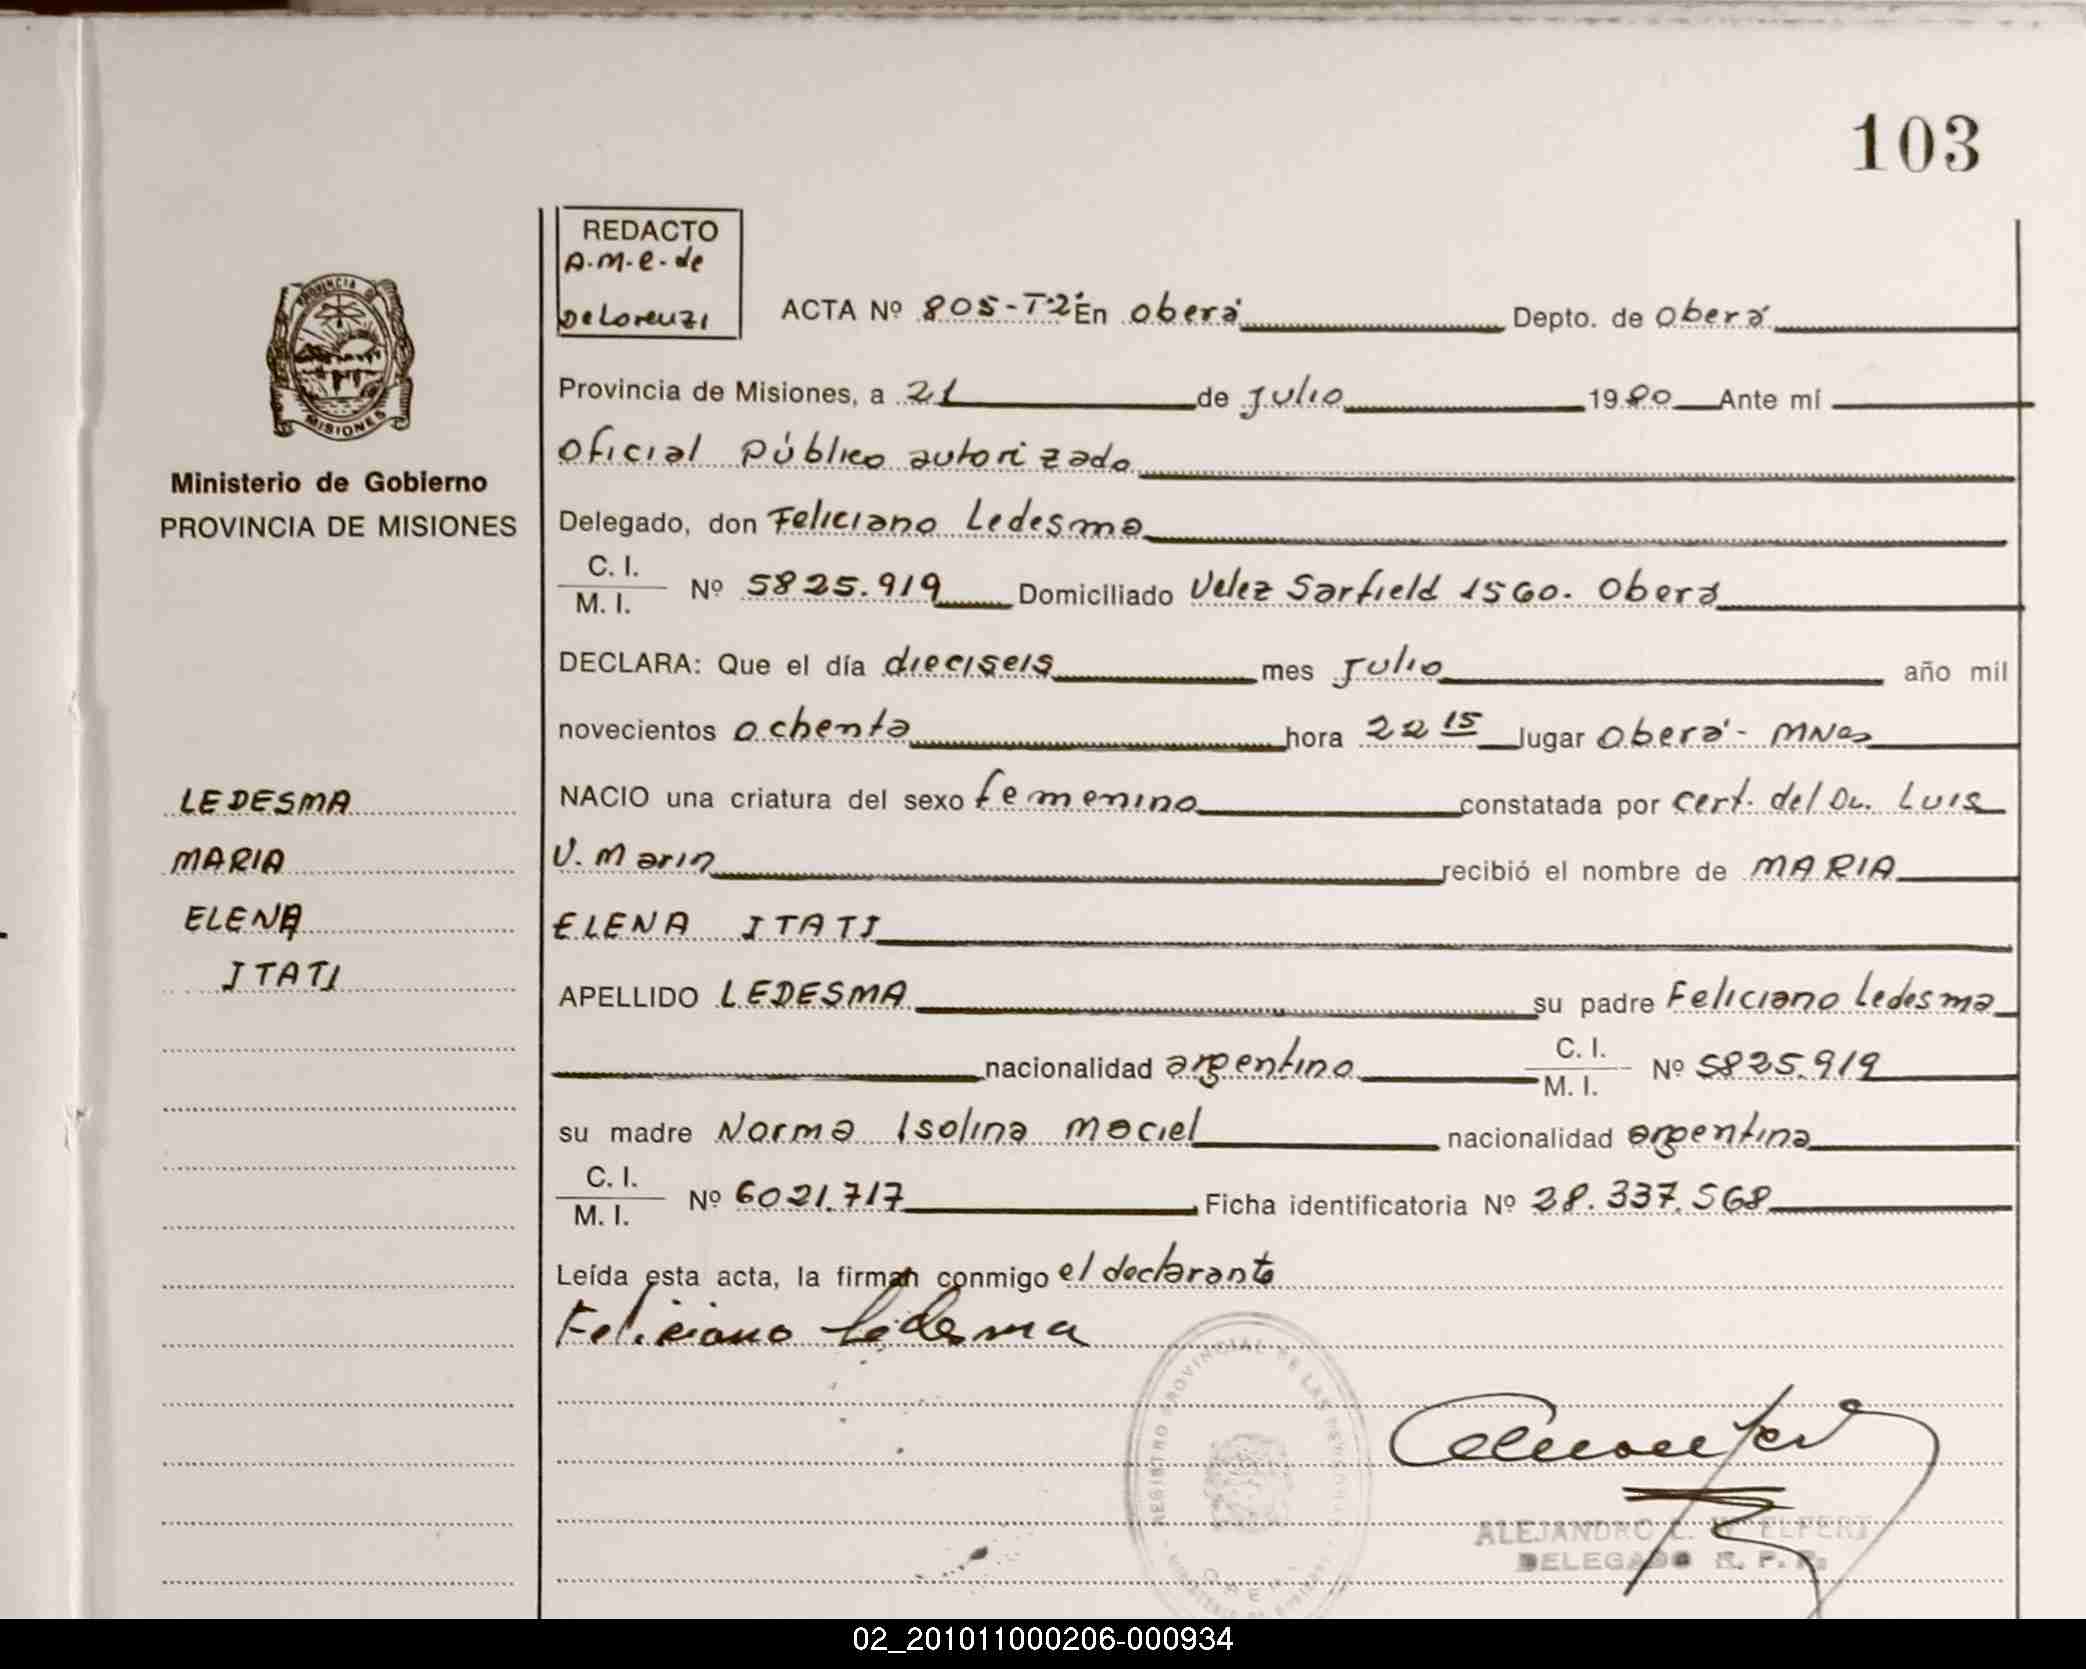 103
REDACTO
A.M.E. de
DeLorenzi
ACTA Nº 805-T2º En Oberá Depto. de Oberá
Provincia de Misiones, a 21 de Julio 1980 Ante mí
Oficial Público autorizado
Delegado, don Feliciano Ledesma
C. I.
M. I. Nº 5825.919 Domiciliado Velez Sarfield 1560. Oberá
DECLARA: Que el día dieciseis mes Julio año mil
novecientos ochenta hora 22 15 lugar Oberá - MNes
NACIO una criatura del sexo femenino constatada por cert. del Dr. Luis
V. Marin recibió el nombre de MARIA
ELENA ITATI
APELLIDO LEDESMA su padre Feliciano Ledesma
nacionalidad argentino C. I.
M. I. Nº 5825.919
su madre Norma Isolina Maciel nacionalidad argentina
C. I.
M. I. Nº 6021.717 Ficha identificatoria Nº 28.337.568
Leída esta acta, la firman conmigo el declarante
Feliciano Ledesma
PROVINCIA DE
MISIONES
Ministerio de Gobierno
PROVINCIA DE MISIONES
LEDESMA
MARIA
ELENA
ITATI
REGISTRO PROVINCIAL DE LAS PERSONAS
ALEJANDRO
DELEGADO R. P. P.
02_201011000206-000934